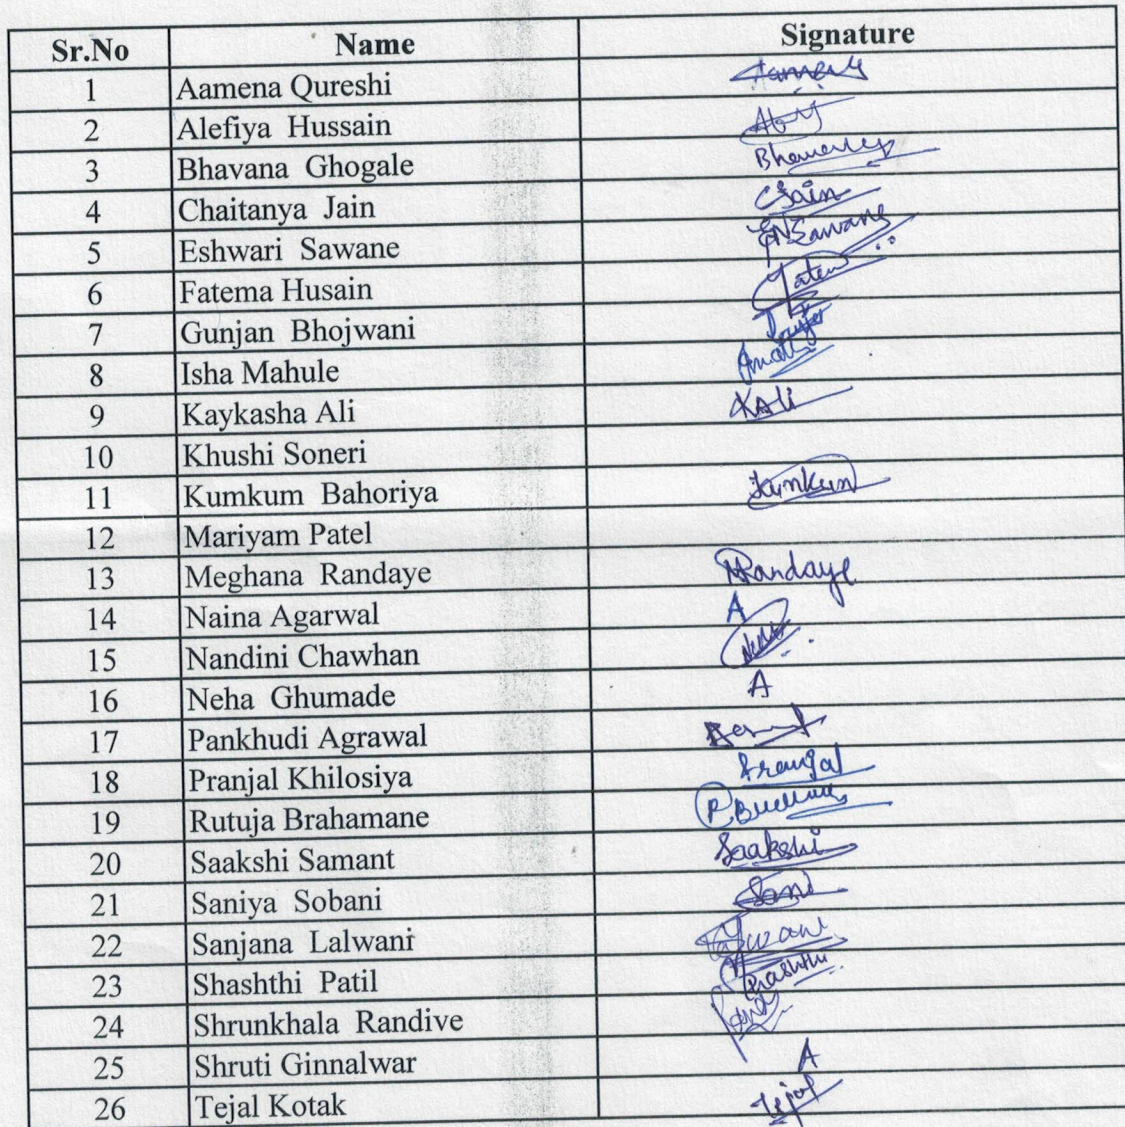 Sr.No Name Signature
1 Aamena Qureshi
2 Alefiya Hussain
3 Bhavana Ghogale
4 Chaitanya Jain CJain
5 Eshwari Sawane
6 Fatema Husain
7 Gunjan Bhojwani
8 Isha Mahule
9 Kaykasha Ali KAli
10 Khushi Soneri
11 Kumkum Bahoriya
12 Mariyam Patel
13 Meghana Randaye MRandaye
14 Naina Agarwal A
15 Nandini Chawhan
16 Neha Ghumade A
17 Pankhudi Agrawal
18 Pranjal Khilosiya
19 Rutuja Brahamane
20 Saakshi Samant Saakshi
21 Saniya Sobani
22 Sanjana Lalwani
23 Shashthi Patil
24 Shrunkhala Randive
25 Shruti Ginnalwar A
26 Tejal Kotak Tejal